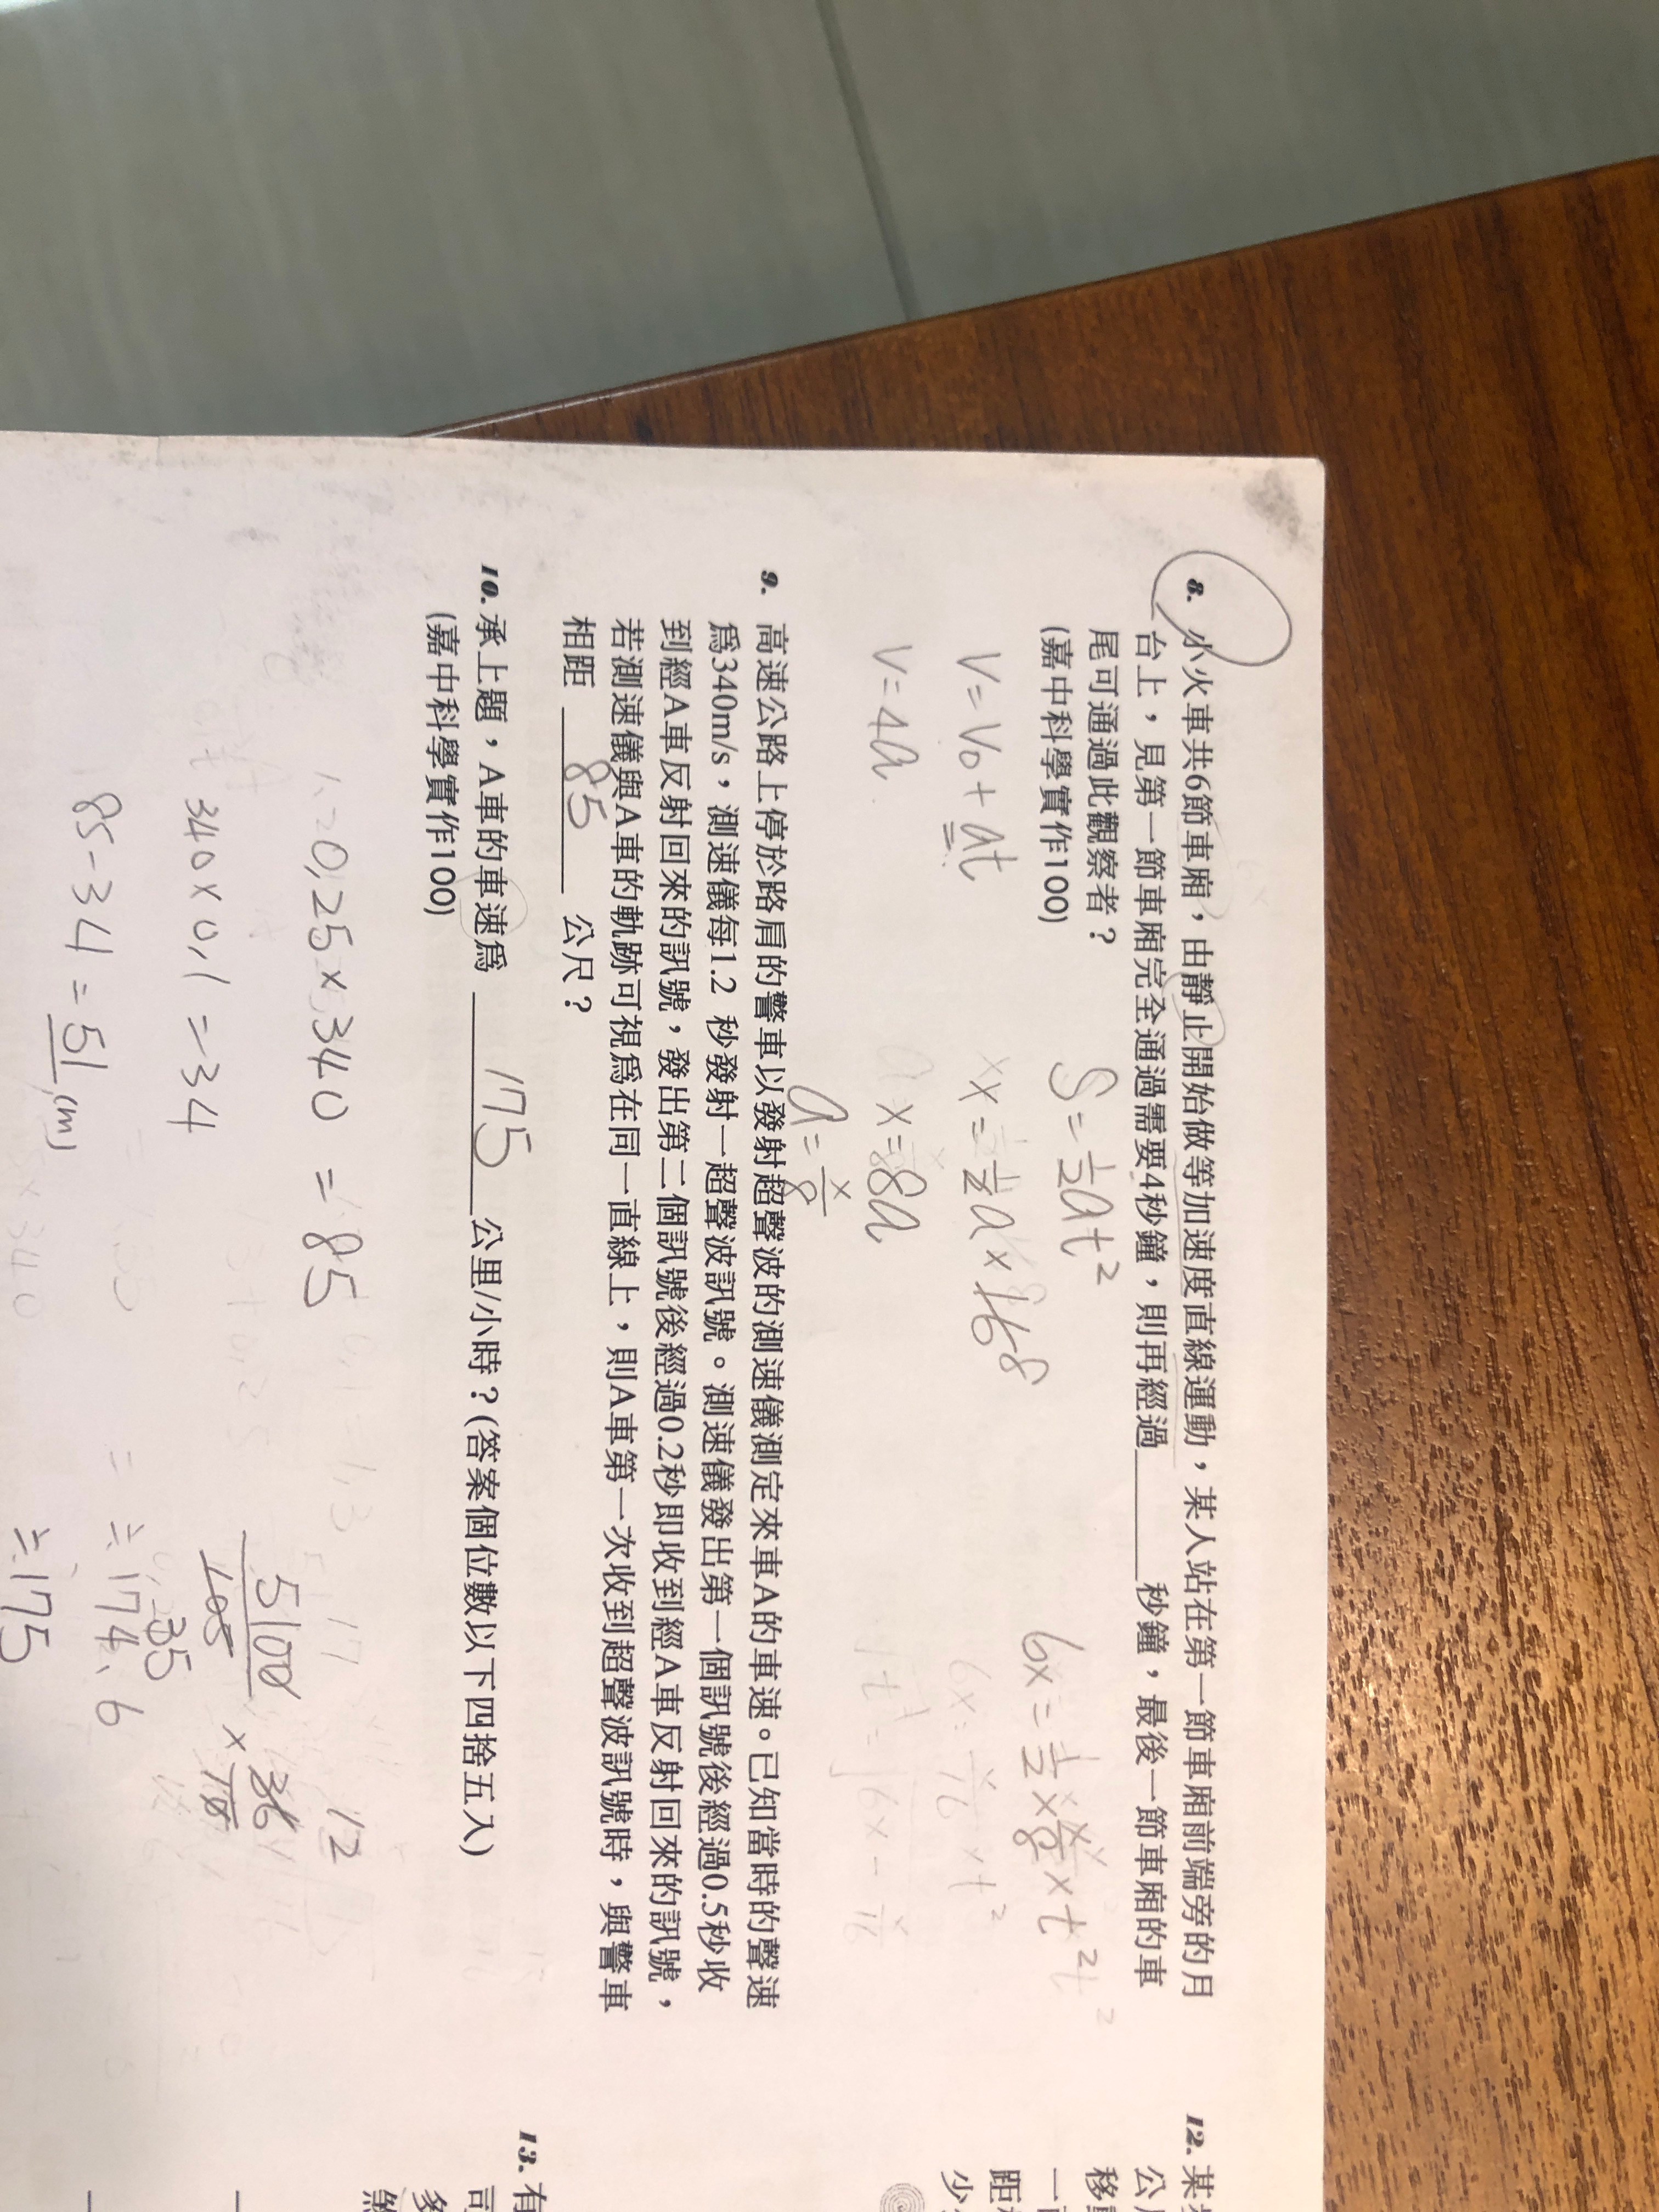 8. 小火車共6節車廂，由靜止開始做等加速度直線運動，某人站在第一節車廂前端旁的月
台上，見第一節車廂完全通過需要4秒鐘，則再經過______秒鐘，最後一節車廂的車
尾可通過此觀察者？
(嘉中科學實作100)
V = V₀ + at
V = 4a
S = ½at²
a = x/8
9. 高速公路上停於路肩的警車以發射超聲波的測速儀測定來車A的車速。已知當時的聲速
爲340m/s，測速儀每1.2 秒發射一超聲波訊號。測速儀發出第一個訊號後經過0.5秒收
到經A車反射回來的訊號，發出第二個訊號後經過0.2秒即收到經A車反射回來的訊號，
若測速儀與A車的軌跡可視爲在同一直線上，則A車第一次收到超聲波訊號時，與警車
相距 85 公尺？
10. 承上題，A車的車速爲 175 公里/小時？(答案個位數以下四捨五入)
(嘉中科學實作100)
0,25 × 340 = 85
340 × 0,1 = 34
85 - 34 = 51 (m)
12
5100
× 36
35
≒ 174.6
≒ 175
12. 某
公
移
一
距
少
13. 有
司
多